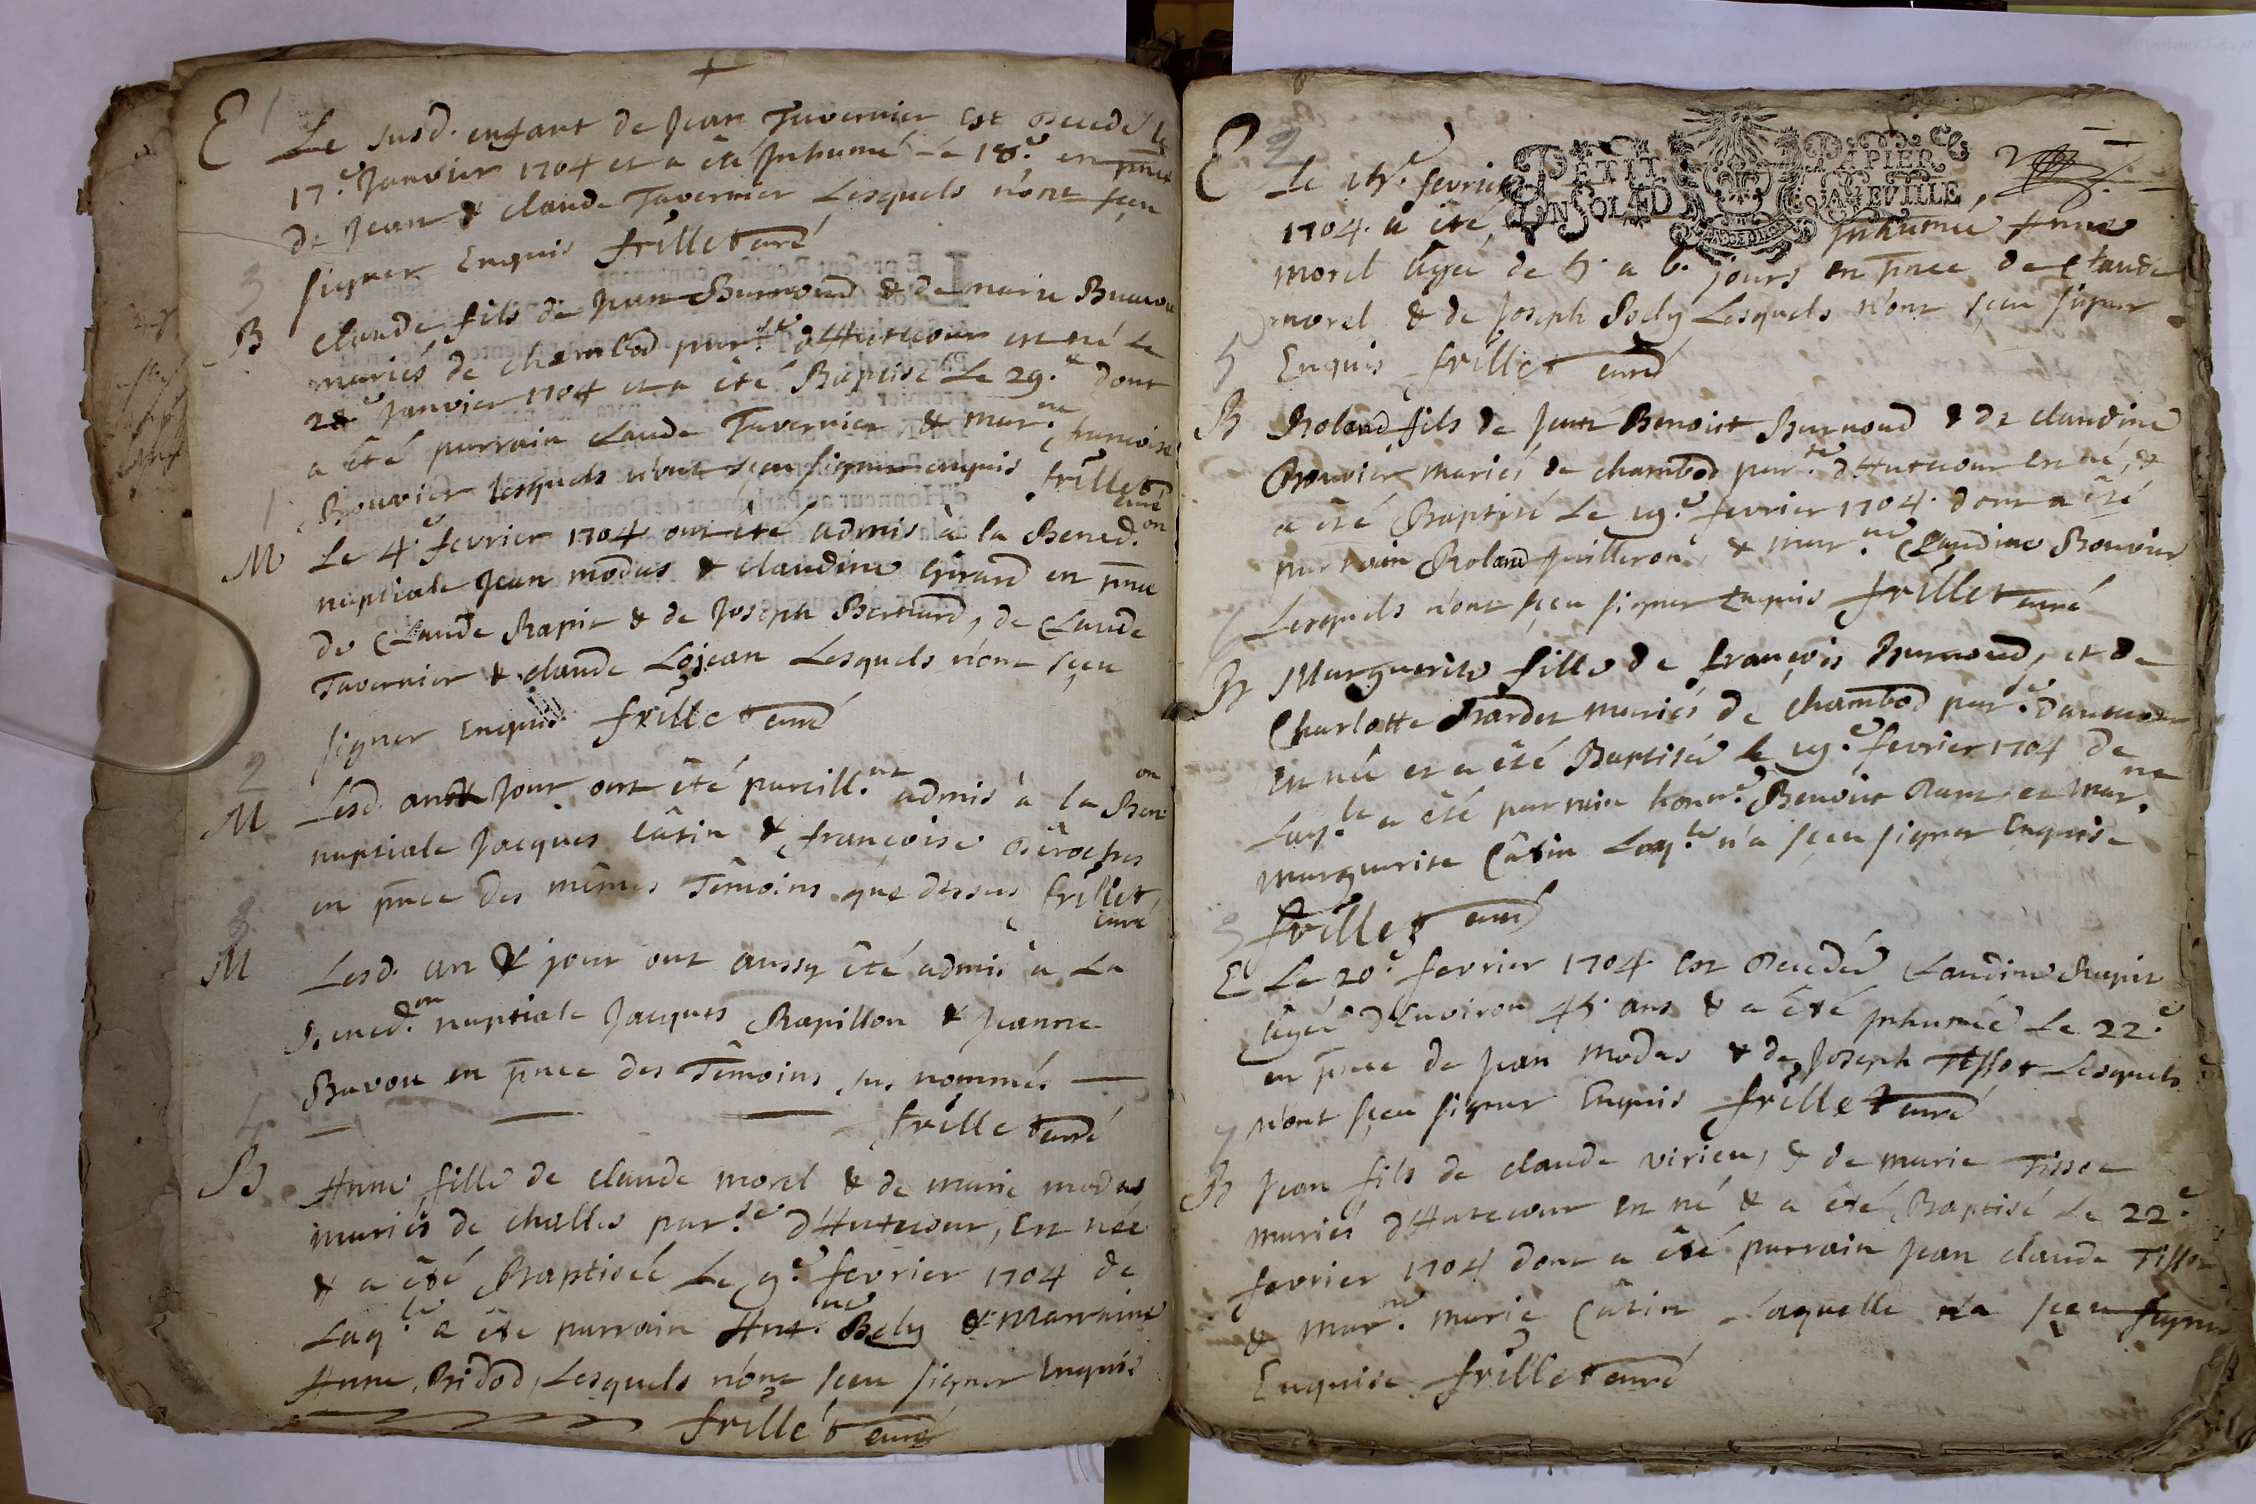 E 1 Le susd. enfant de Jean Tavernier est decedé le
17.e Janvier 1704 et a êté Jnhumé Le 18.e en pnce
de Jean & claude Tavernier Lesquels n'ont sçeu
signer Enquis frillet curé
3
B claude fils de Jean Burnoud & de marie
mariés de chambod parr.se d'Hutecour est né le
28.e Janvier 1704 et a êté Baptisé Le 29.e dont
a êté parrain claude Tavernier & mar.ne francoise
Bouvier lesquels n'ont sçeu signer enquis frillet
curé
1
M Le 4.e fevrier 1704 ont êté admis à la Bened.on
nuptiale Jean modas & claudine Girard en pnce
de Claude Rapit & de Joseph Bernard, de Claude
Tavernier & claude Lojean Lesquels n'ont sçeu
signer Enquis frillet curé
2
M Lesd. an & Jour ont êté pareill.nt admis à la Ben.on
nuptiale Jacques Câtin & francoise
en pnce des mêmes Têmoins que dessus frillet,
curé
3
M Lesd. an & jour ont aussy êté admis à La
Bened.on nuptiale Jacques Rapillon & Jeanne
Bavou en pnce des Têmoins sus nommés
4 frillet curé
B Anne fille de claude morel & de marie modas
mariés de challes par.se d'Hutecour, est née
& a êté Baptisée Le 9.e fevrier 1704 de
Laq.le a êté parrain Ant.ne Bely & Marraine
Anne Bidod, Lesquels n'ont sçeu signer Enquis
frillet curé
E 2 Le 15.e fevrier PETIT PAPIER
UN SOL 4 D LA FEUILLE
1704. a êté Jnhumée Anne
morel âgée de 5. a 6. jours en pnce de Claude
morel & de Joseph Bely Lesquels n'ont sçeu signer
5 Enquis frillet curé
B Roland fils de Jean Benoist Burnoud & de claudine
Bouvier mariés de chambod par.se d'Hutecour est né, &
a êté Baptisé Le 19.e fevrier 1704. dont a êté
parrain Roland & mar.ne Claudine Bouvier
6 Lesquels n'ont sçeu signer Enquis frillet curé
B Marguerite fille de françois Burnoud, et de
Charlotte mariés de chambod par.e
est née et a êté Baptisée le 19.e fevrier 1704 de
Laq.le a êté parrain honn.e Benoist et Mar.ne
Marguerite Câtin Laq.le n'a sçeu signer Enquise
3 frillet curé
E Le 20.e fevrier 1704 est decedée Claudine Rapit
âgée d'Environ 45. ans & a êté Jnhumée Le 22.e
en pnce de Jean modas & de Joseph Tissot Lesquels
7 n'ont sçeu signer Enquis frillet curé
B Jean fils de claude virieu, & de marie Tissot
mariés d'Hutecour est né & a êté Baptisé Le 22.e
fevrier 1704 dont a êté parrain Jean claude Tissot
& mar.ne marie Câtin Laquelle n'a sçeu signer
Enquise frillet curé